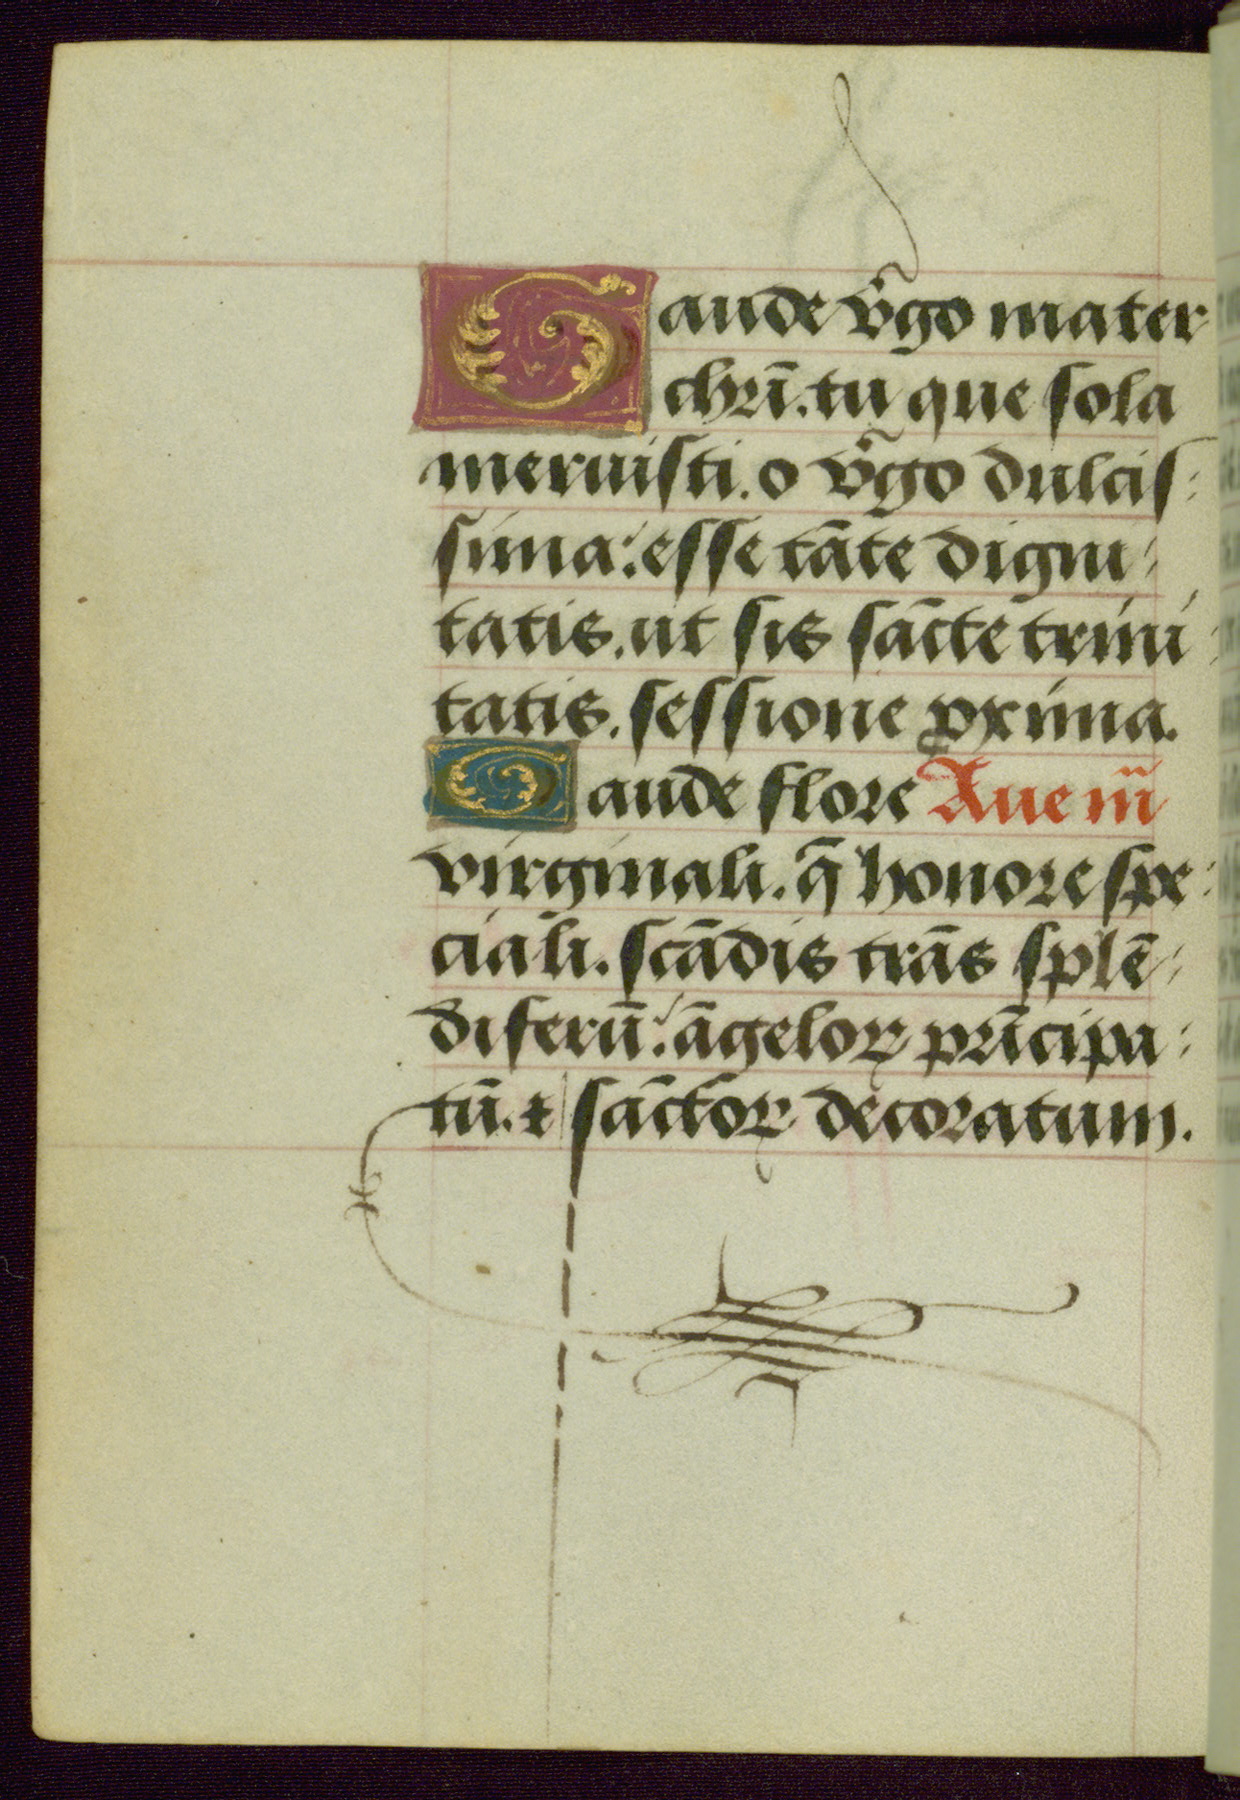 Gaude v̄go mater
chrı̄. tu que sola
meruisti. o v̄go dulcis-
sima: esse tāte digni-
tatis. ut sis sācte trini-
tatis. sessione ꝓxima.
Gaude flore Aue m̄
virginali. q̄ honore spe-
ciali. scādis trās splē-
diferū: āgeloꝝ prīcipa-
tū. ⁊ sāctoꝝ decoratum.